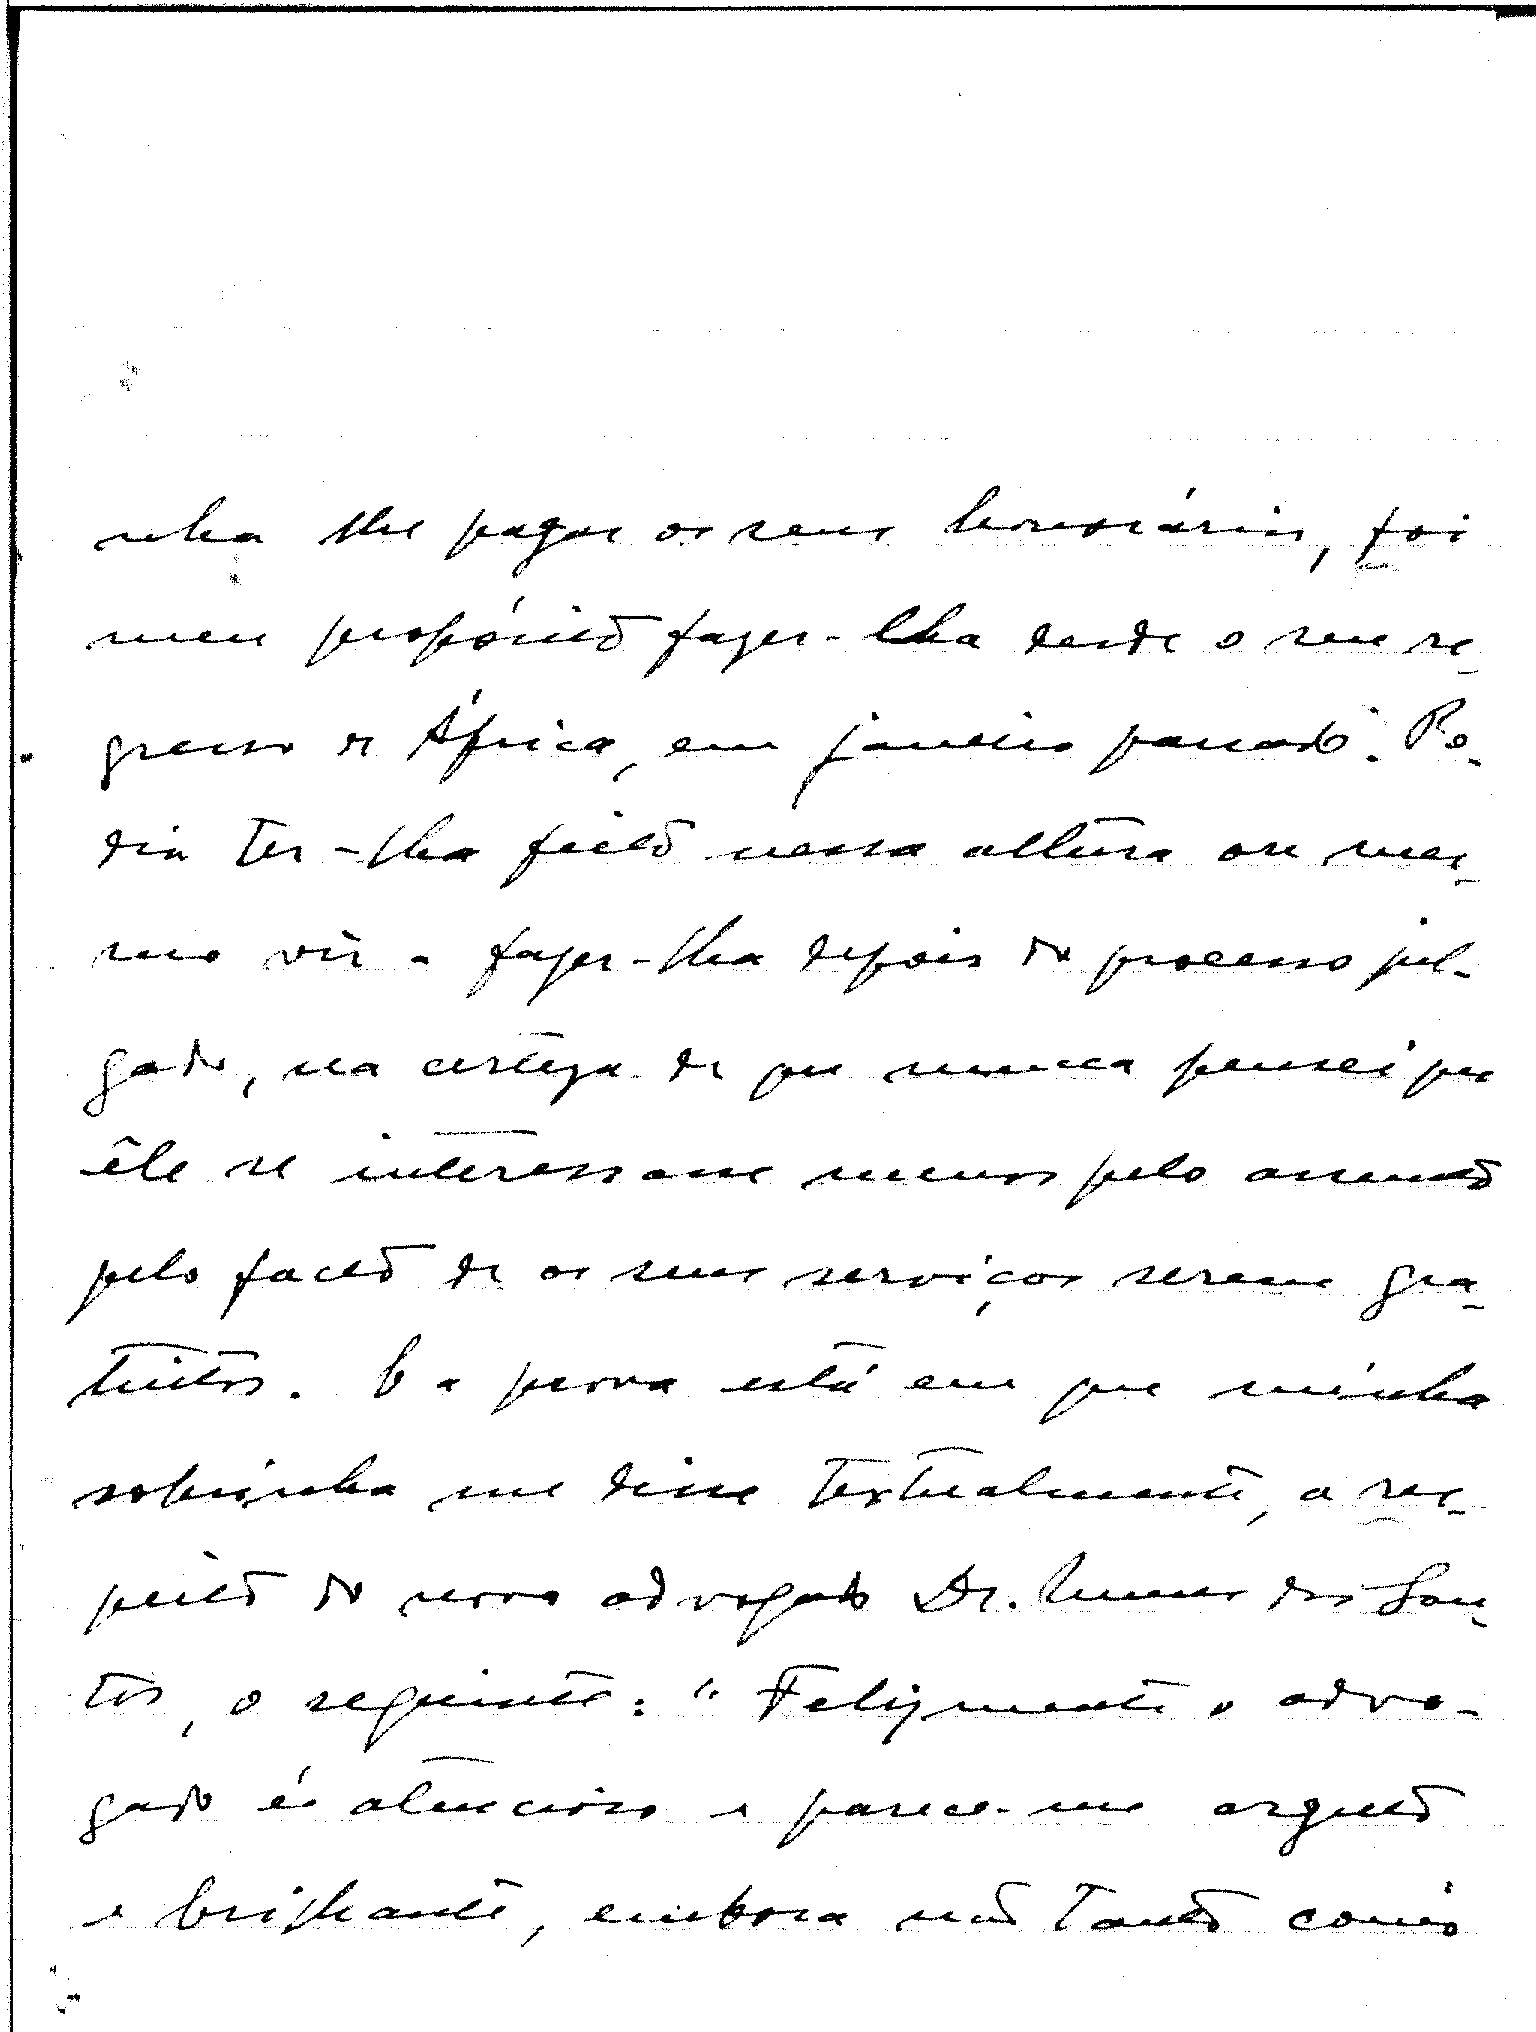 nha lhe pagar os seus honorários, foi
meu propósito fazer-lha desde o seu re-
gresso de África, em janeiro passado. Po-
dia ter-lha feito nessa altura ou mes-
mo vir a fazer-lha depois do processo jul-
gado, na certeza de que nunca pensei que
êle se interessasse menos pelo assunto
pelo facto de os seus serviços serem gra-
tuitos. E a prova está em que minha
sobrinha me disse textualmente, a res-
peito do novo advogado Dr. Nunes dos San-
tos, o seguinte: "Felizmente o advo-
gado é atencioso e parece-me arguto
e brilhante, embora não tanto como